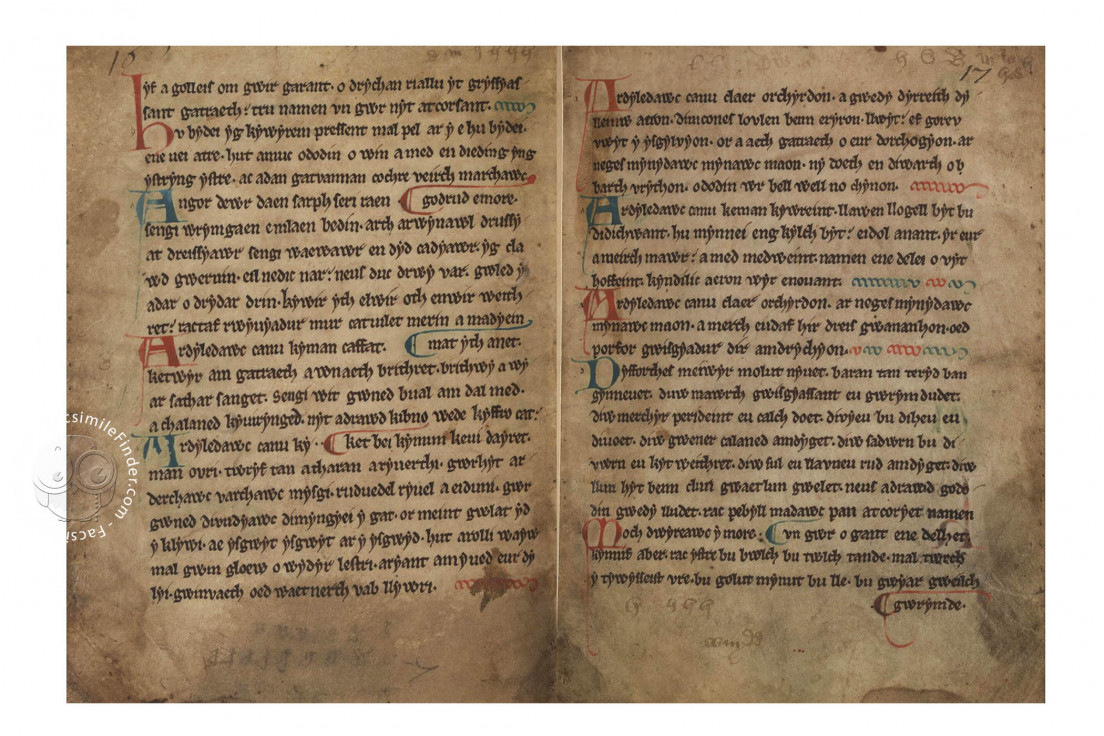 16
hẏt a golleis om gwir garant. o drẏchan riallu ẏt grẏssẏas
sant gatraeth: tru namen vn gwr nẏt atcorsant.
hv bẏdei ẏg kẏwẏrein pressent mal pel ar ẏ e hu bẏdei.
ene uei atre. hut amuc ododin o win a med en dieding ẏng
ẏstrẏng ẏstre. ac adan gatvannan cochre veirch marchawc
Angor dewr daen sarph seri raen godrud emore.
sengi wrẏmgaen emlaen bedin. arth arwẏnawl drussẏ
at dreissẏawr sengi waewawr en dẏd cadẏawr. ẏg cla
wd gwernin. eil nedic nar: neus duc drwẏ var. gwled ẏ
adar o drẏdar drin. kẏwir ẏth elwir oth enwir weith
ret: ractaf rwẏuẏadur mur catuilet merin a madẏein
Ardẏledawc canu kẏman caffat. mat ẏth anet.
ketwẏr am gatraeth a wnaeth brithret. brithwẏ a wẏ
ar sathar sanget. sengi wit gwned bual am dal med.
a chalaned kẏuirẏnged. nẏt adrawd kibno wede kẏffro cat:
Ardẏledawc canu kẏ ket bei kẏmun keui daẏret.
man ovri. twrẏf tan a tharan a rẏuerthi. gwrhẏt ar
derchawc varchawc mẏsgi. ruduedel rẏuel a eiduni. gwr
gwned divudẏawc dimẏngẏei ẏ gat. or meint gwlat ẏd
ẏ klẏwi. ae ẏsgwẏt ẏsgwẏt ar ẏ ẏsgwẏd. hut arolli waẏw
mal gwin gloew o wẏdẏr lestri. arẏant am ẏued eur dẏ
lẏi. gwinvaeth oed waetnerth vab llẏwri.
17
Ardẏledawc canu claer orchẏrdon. a gwedẏ dẏrreith dẏ
lleinw aeron. dimcones lovlen benn erẏron. llwẏt: ef gorev
vwẏt ẏ ẏsgẏlvẏon. or a aeth gatraeth o eur dorchogẏon. ar
neges mẏnẏdawc mẏnawc maon. nẏ doeth en diwarth o b
barth vrẏthon. ododin wr bell well no chẏnon.
Ardẏledawc canu keman kẏwreint. llawen llogell bẏt bu
didichwant. hu mẏnnei eng kẏlch bẏt: eidol anant. ẏr eur
a meirch mawr: a med medweint. namen ene delei o vẏt
hoffeint. kẏndilic aeron wẏr enouant.
Ardẏledawc canu claer orchẏrdon. ar neges mẏnẏdawc
mẏnawc maon. a merch eudaf hir dreis gwananhon. oed
porfor gwisgẏadur dir amdrẏchẏon.
Dẏfforthes meiwẏr molut nẏuet. baran tan terẏd ban
gẏnneuet. duw mawrth gwisgẏassant eu gwrẏm dudet.
diw merchẏr perideint eu calch doet. divẏeu bu diheu eu
diuoet. diw gwener calaned amdẏget. diw sadwrn bu di
vwrn eu kẏt weithret. diw sul eu llavneu rud amdẏget. diw
llun hẏt benn clun gwaetlun gwelet. neus adrawd godo
din gwedẏ lludet. rac pebẏll madawc pan atcorẏet namen
Moch dwẏreawc ẏ more. vn gwr o gant ene delhet.
kẏnnif aber. rac ẏstre bu bwlch bu twlch tande. mal twrch
ẏ tẏwẏsseist vre. bu golut mẏnut bu lle. bu gwẏar gweilch
gwrẏmde.